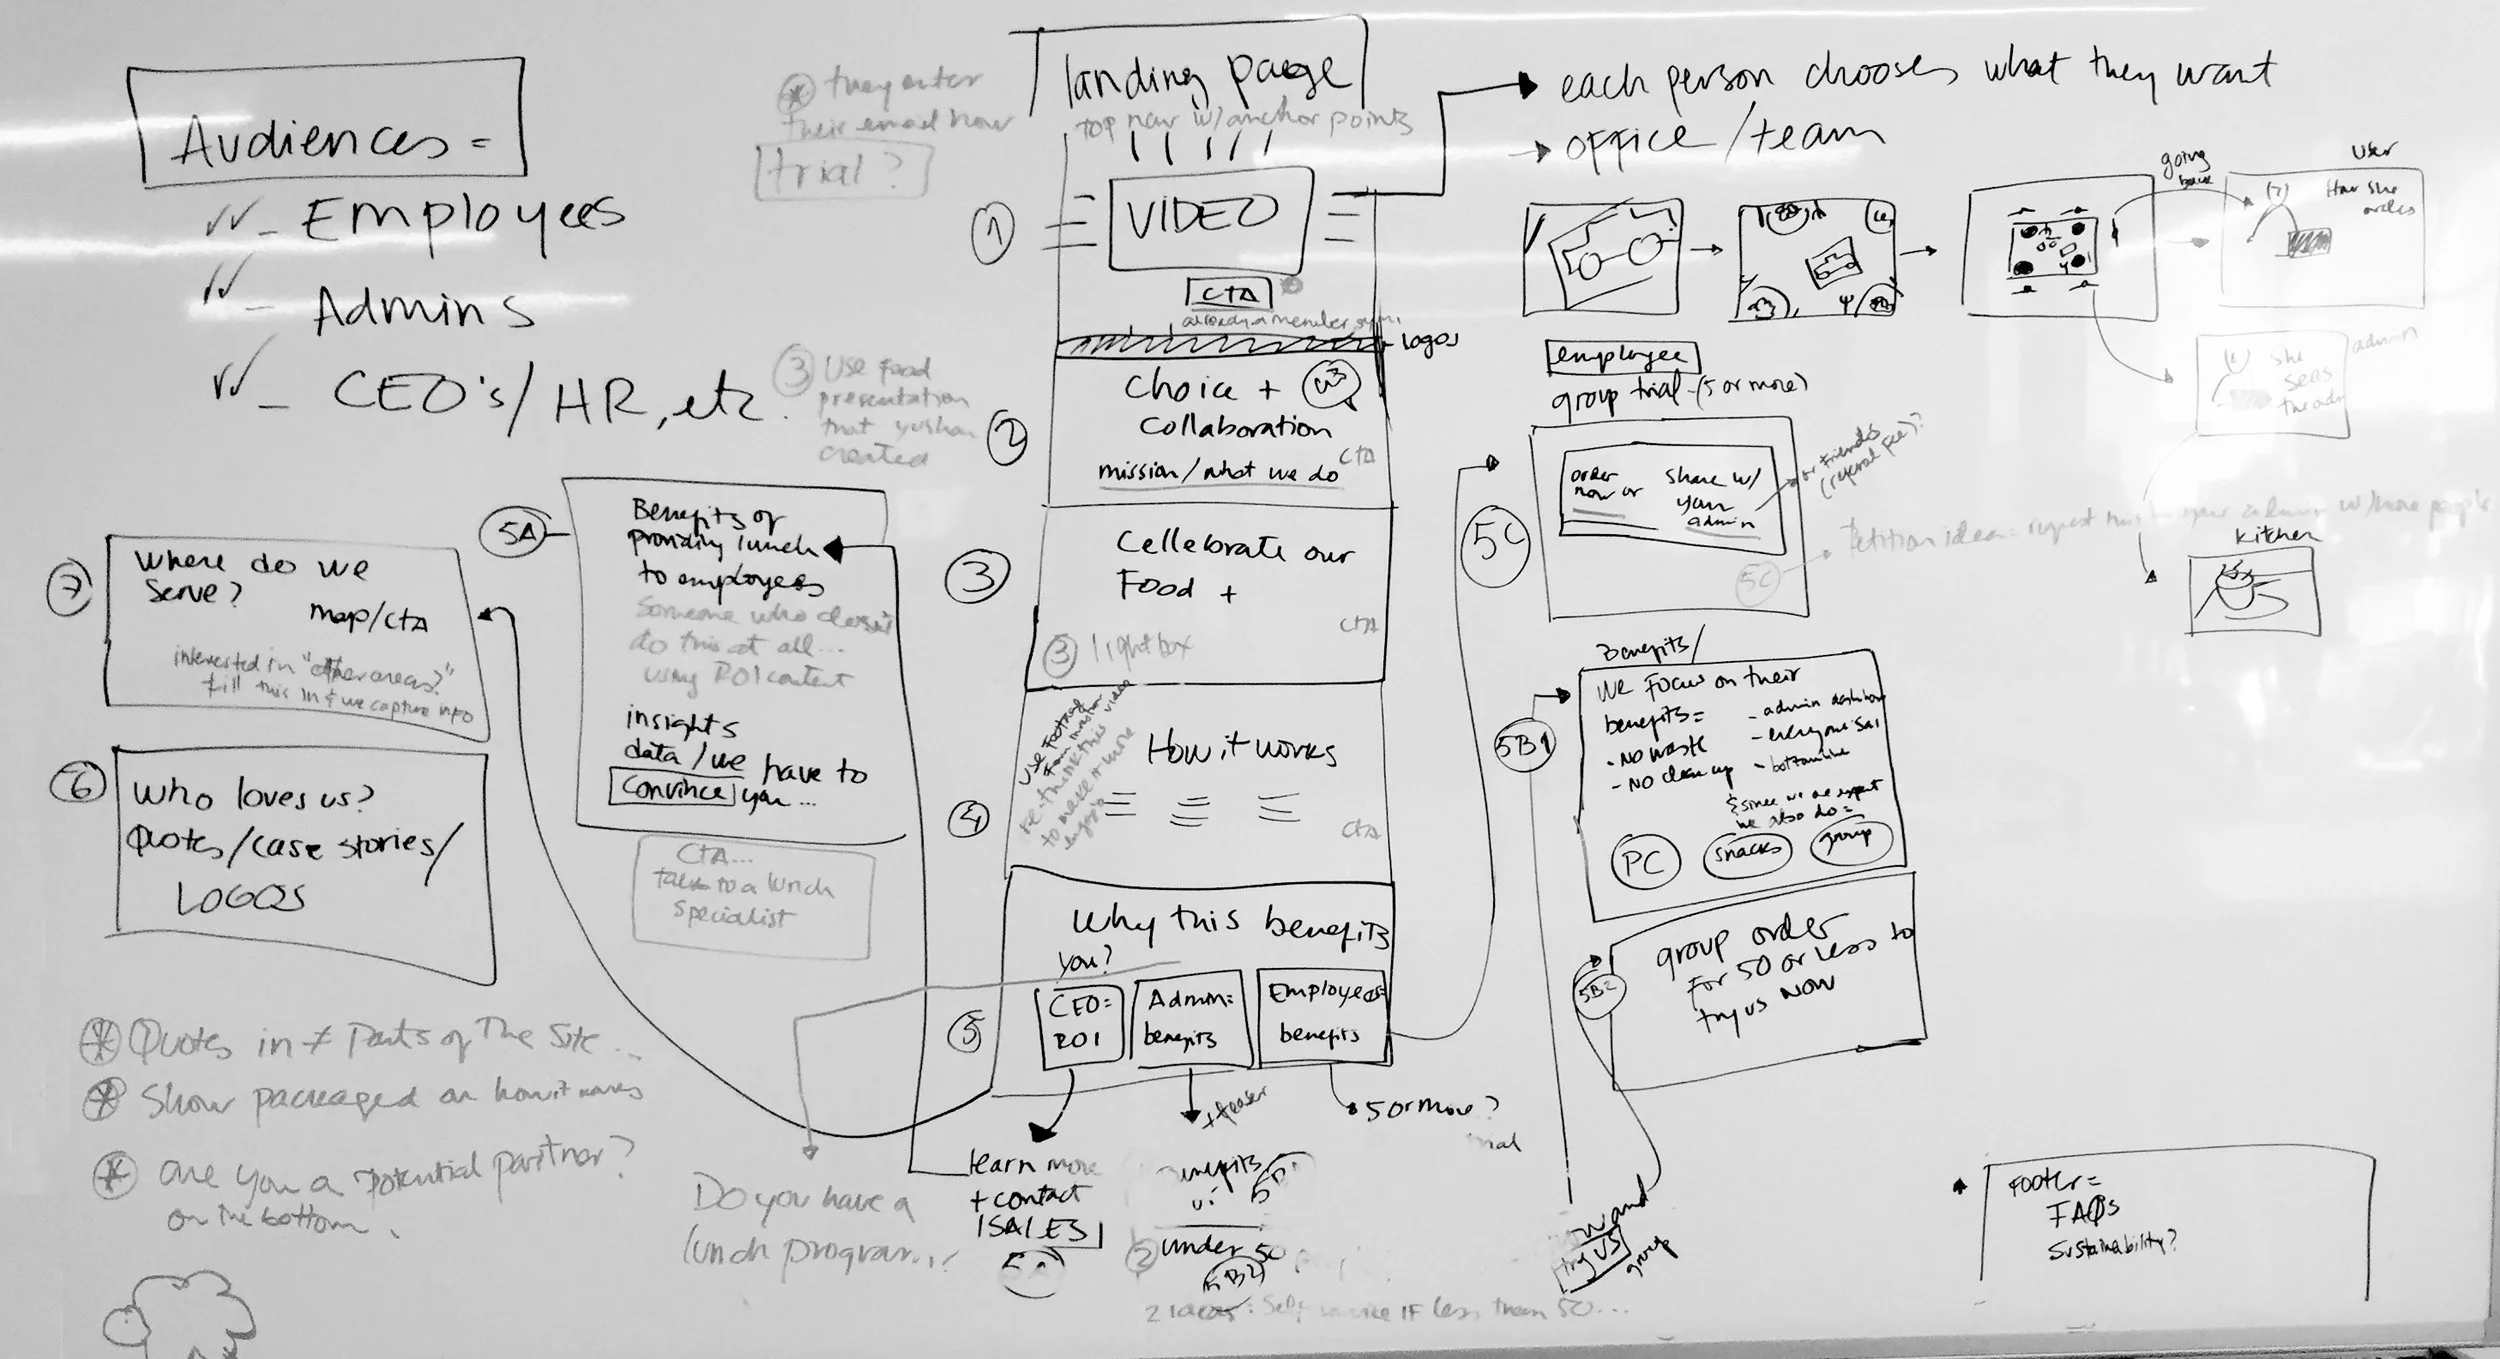 Audiences =
- Employees
- Admins
- CEO's/HR, etc.
* they enter
their email now
trial?
landing page
top nav w/anchor points
1
VIDEO
CTA
already a member sign
logos
each person chooses what they want
office/team
going
back
user
How she
orders
admin
she
sees
the
kitchen
3 Use Food
presentation
that yushan
created
2
Choice +
collaboration
mission/what we do
CTA
3
Cellebrate our
Food +
CTA
3 lightbox
4
How it works
use footage
from
re-think this
to make it more
CTA
5
Why this benefits
you?
CEO=
ROI
Admin=
benefits
Employees=
benefits
learn more
+ contact
SALES
5A
+ teaser
under 50
5B2
5 or more?
2 ideas: Self IF less than 50...
Do you have a
lunch program..?
5A
Benefits of
providing lunch
to employees
Someone who doesn't
do this at all...
using ROI content
insights
data/we have to
convince you...
CTA...
talk to a lunch
specialist
7
Where do we
serve?
map/CTA
interested in "other areas?"
fill this in & we capture info
6
Who loves us?
Quotes/case stories/
LOGOS
* Quotes in ≠ Parts of The Site...
* Show packaged on how it works
* are you a potential partner?
on the bottom.
employee
group trial (5 or more)
5C
order
now or
share w/
your
admin
or friends
(referral fee)?
5C
Petition idea = request this to your admin w/more people
Benefits/
5B1
We focus on their
benefits =
- No waste
- No clean up
- admin dashboard
- bottomline
since we are expert
we also do =
PC
snacks
group
5B2
group order
For 50 or less to
try us now
and
try us
group
Footer =
FAQs
Sustainability?